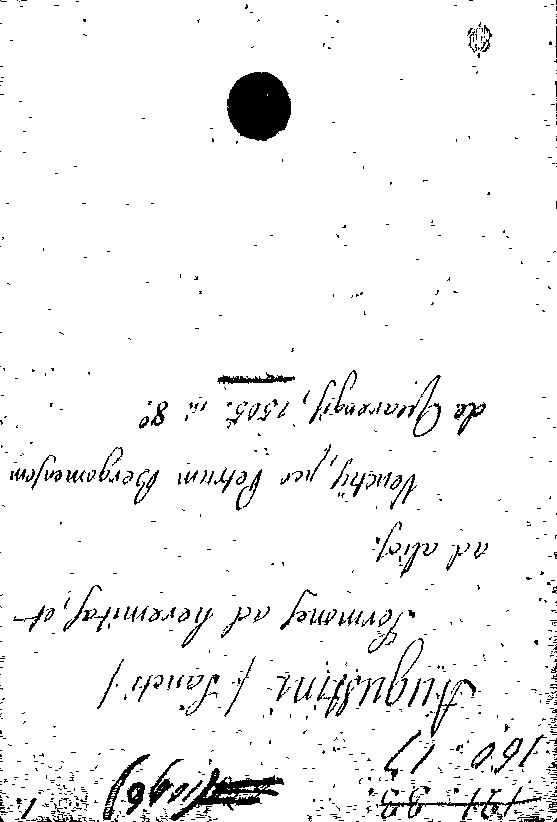 160. 17
Augustini (Sancti)
Sermones ad heremitas, et
ad alios.
Venetijs, per Petrum Bergomensem
de Quarengijs, 1505. in 8º.